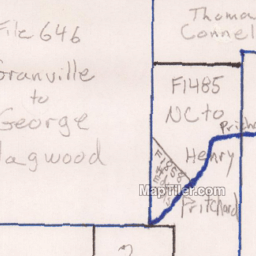 File 646
Granville
to
George
Hagwood
Thoma
Connel
F1485
NC to
Henry
Pritchard
Pritch
F1858
MapTiler.com
?